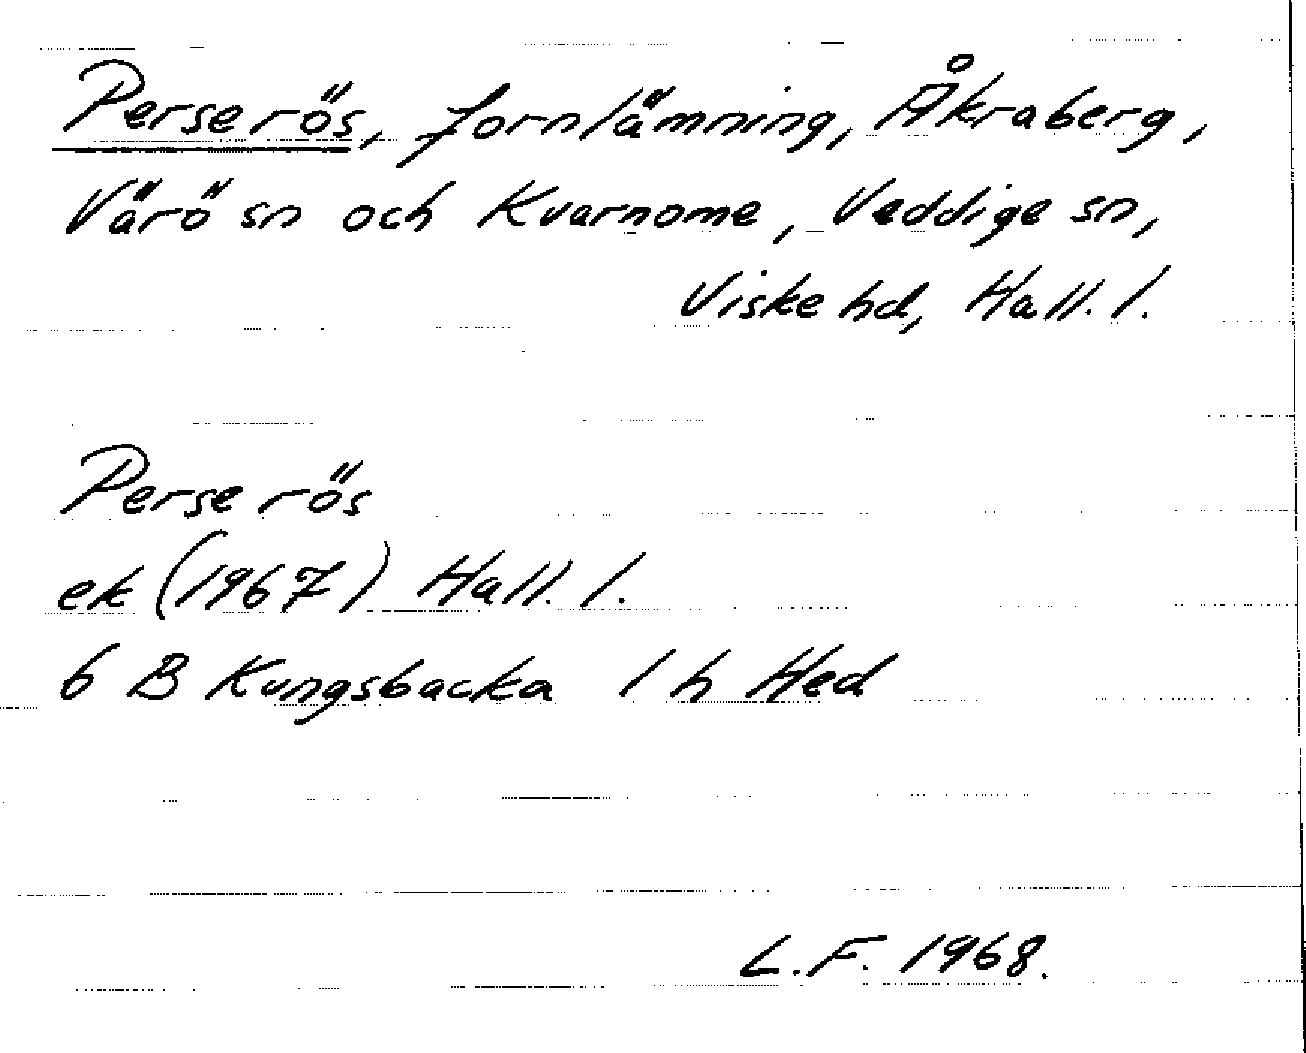 Perse rös, fornlämning, Åkraberg,
Värö sn och Kvarnome, Veddige sn,
Viske hd, Hall. l.
Perse rös
ek (1967) Hall. l.
6 B Kungsbacka 1 h Hed
L.F. 1968.